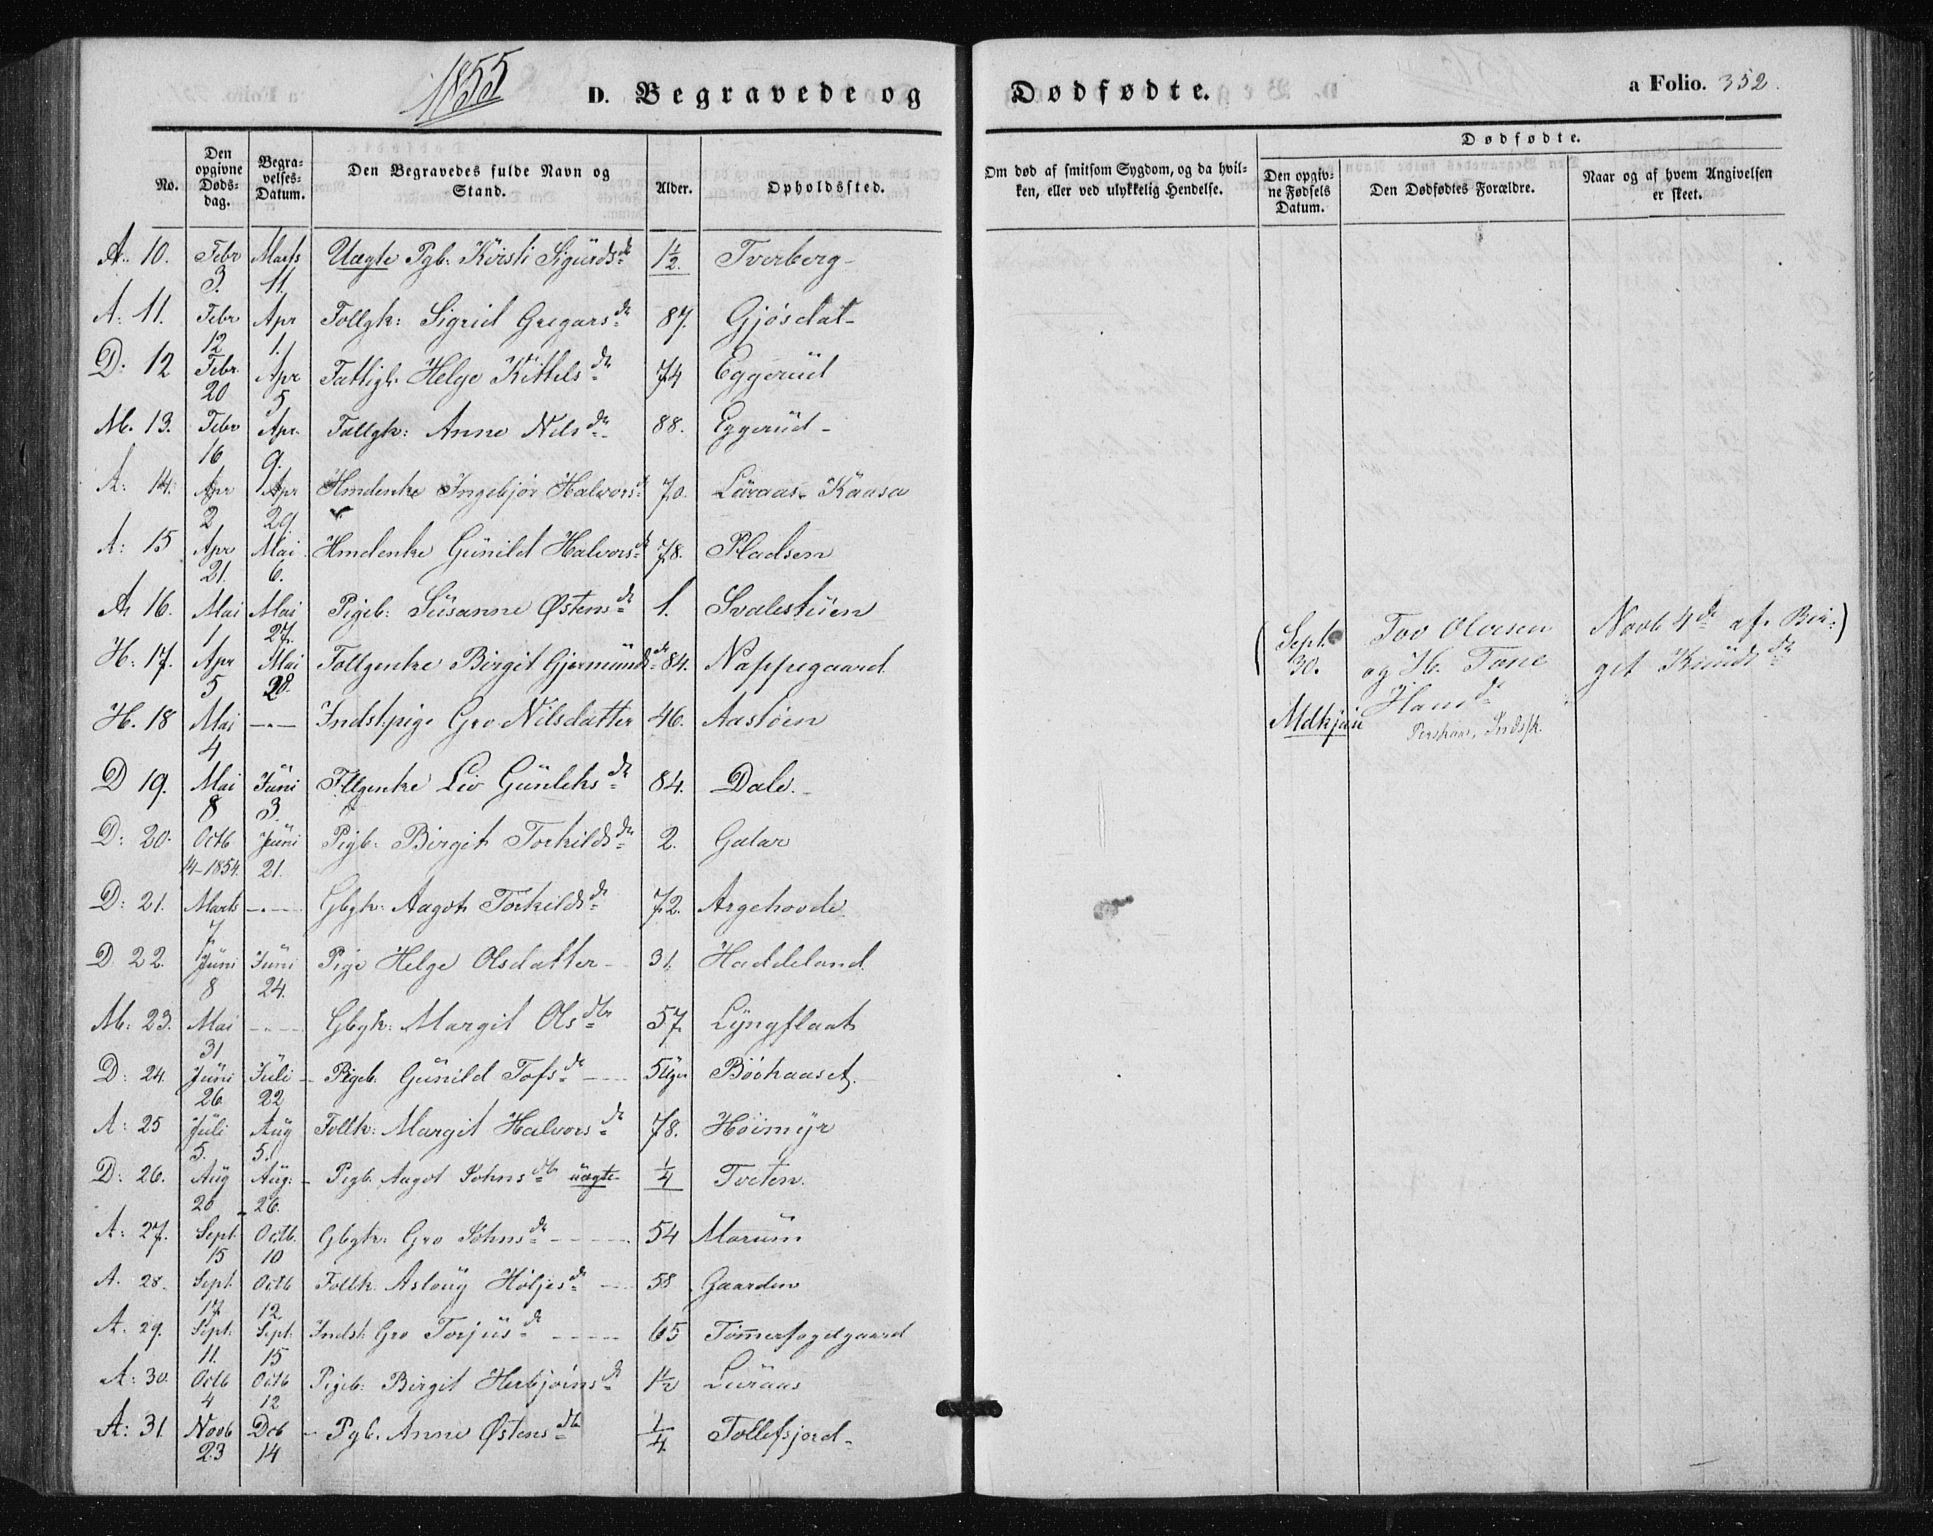 1855
D. Begravede og Dødfødte.
a Folio. 352.
No.
Den opgivne Døds-dag.
Begra-velses-Datum.
Den Begravedes fulde Navn og Stand.
Alder.
Opholdssted.
Om død af smitsom Sygdom, og da hvil-ken, eller ved ulykkelig Hendelse.
Dødfødte.
Den opgiv-ne Fødsels Datum.
Den Dødfødtes Forældre.
Naar og af hvem Angivelsen er skeet.
A. 10. Febr 3. Marts 11. Uægte Pgb. Kirsti Sigurdsdr 1½. Tverberg
A: 11. Febr 12 Apr 1. Follgk: Sigrid Gregarsdr 87. Gjøsdal
D: 12 Febr 20 Apr 5 Fattigk. Helge Kittelsdr 74 Eggerud
M. 13. Febr 16 Apr. 9. Follgk: Anne Nilsdr 88. Eggerud
A: 14. Apr 2 Apr 29 Hmdenke Ingebjør Halvorsdr 70. Luraas Kaasa
A: 15 Apr 21. Mai 6. Hmdenke Gunild Halvorsdr 78. Pladsen
A. 16. Mai 1 Mai 27. Pigeb: Susanne Østensdr 1. Svalestuen
H: 17. Apr 5 Mai 28. Follgenke Birgit Gjermundsdr 84. Nappegaard
H. 18 Mai 4 -„- Indst. pige Gro Nilsdatter 46. Aastøen
D 19. Mai 8 Juni 3. Fllgenke Liv Gunleksdr 84. Dale.
D: 20. Octb 14-1854. Juni 21. Pigb. Birgit Torkildsdr 2. Galar
D: 21. Marts 7 -„- Gbgk. Aagot Torkildsdr 72. Argehovde
D. 22. Juni 8 Juni 24. Pige Helge Olsdatter 31. Haddeland
M: 23. Mai 31 -„- Gbgk: Margit Olsdtr 57. Lyngflaat
D: 24. Juni 26 Juli 22 Pigeb. Gunild Tofsdr 5 Uger Böokaaset.
A: 25 Juli 5. Aug 5. Follk: Margit Halvorsdr 78. Høimyr
D: 26. Aug 26 Aug: 26. Pigb. Aagot Johnsdtr uægte ¼ Tveten.
A: 27. Sept. 15 Octb. 10 Gbgk: Gro Johnsdr 54 Marum
A. 28. Sept. 17. Octb 12 Follk. Asloug Høljesdr 58 Gaarden
A. 29. Sept. 11. Sept. 15 Indst: Gro Torjusdr 65 Tommerfogdgaard
A: 30. Octb 4 Octb 12 Pigeb: Birgit Herbjørnsdr 1½ Luraas
A: 31. Novb 23 Dcb 14 Pgb. Anne Østensdtr ¼ Tollefsjord
(Sept. 30. Tov Olvesen Novb 4de af Bir-)
og H. Tone get Knudsdr
Mdkjøn Hansdr
Indsk.